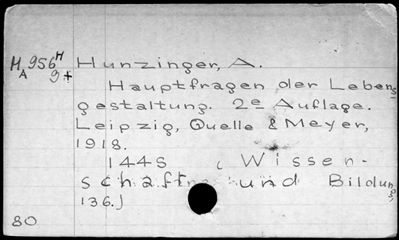 H,956H Hunzinger, A.
A 9+
Hauptfragen der Lebens
gestaltung. 2e Auflage.
Leipzig, Quelle & Meyer,
1918.
144S (Wissen-
schaft und Bildung
136.)
80